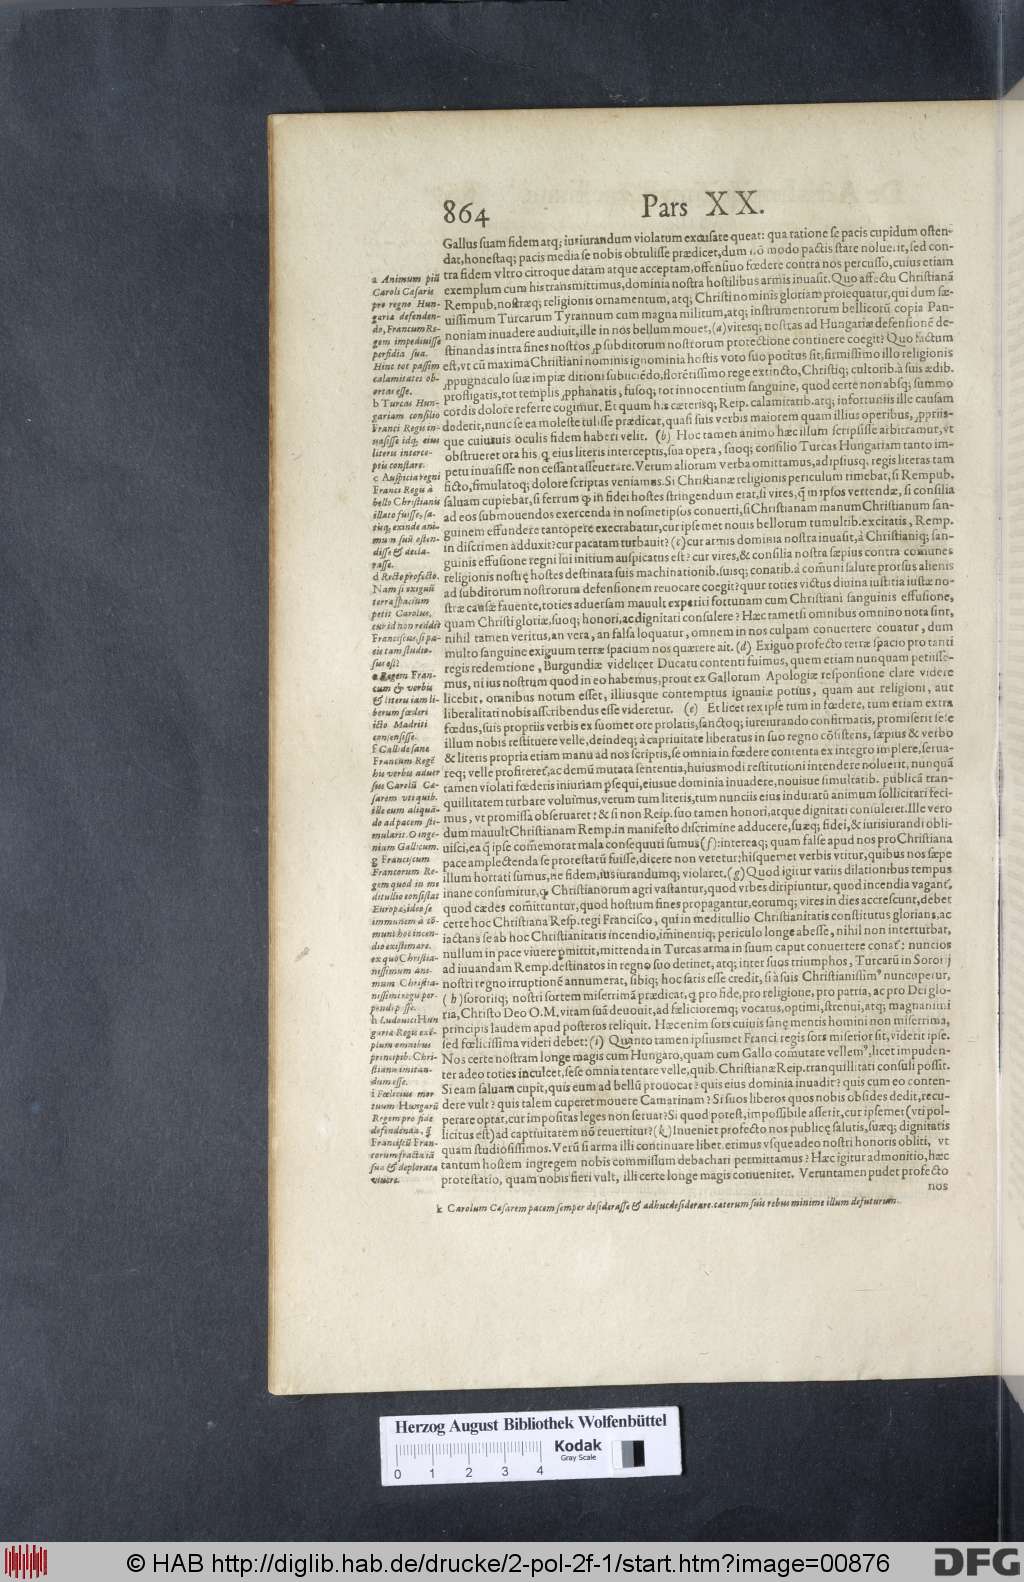 864
Pars XX.
Gallus suam fidem atq; iusiurandum violatum excusare queat: qua ratione se pacis cupidum osten-
dat, honestaq; pacis media se nobis obtulisse prædicet, dum nō modo pactis stare noluerit, sed con-
tra fidem vltro citroque datam atque acceptam, offensiuo fœdere contra nos percusso, cuius etiam
exemplum cum his transmittimus, dominia nostra hostilibus armis inuasit. Quo affectu Christianā
Rempub. nostræq; religionis ornamentum, atq; Christi nominis gloriam prosequatur, qui dum sæ-
uissimum Turcarum Tyrannum cum magna militum, atq; instrumentorum bellicorū copia Pan-
noniam inuadere audiuit, ille in nos bellum mouet, (a) viresq; nostras ad Hungariæ defensionē de-
stinandas intra fines nostros, ꝑ subditorum nostrorum protectione continere coegit? Quo factum
est, vt cū maxima Christiani nominis ignominia hostis voto suo potitus sit, firmissimo illo religionis
ꝓpugnaculo suæ impiæ ditioni subiiciēdo, florētissimo rege extincto, Christiq; cultorib. à suis ædib.
profligatis, tot templis ꝓphanatis, fusoq; tot innocentium sanguine, quod certe non absq; summo
cordis dolore referre cogimur. Et quum his cæterisq; Reip. calamitatib. atq; infortuniis ille causam
dederit, nunc se ea moleste tulisse prædicat, quasi suis verbis maiorem quam illius operibus, ꝓpriis-
que cuiusuis oculis fidem haberi velit. (b) Hoc tamen animo hæc illum scripsisse arbitramur, vt
obstrueret ora his, q eius literis interceptis, sua opera, suoq; consilio Turcas Hungariam tanto im-
petu inuasisse non cessant asseuerare. Verum aliorum verba omittamus, ad ipsiusq. regis literas tam
ficto, simulatoq; dolore scriptas veniamus. Si Christianæ religionis periculum timebat, si Rempub.
saluam cupiebat, si ferrum q in fidei hostes stringendum erat, si vires, q̄ in ipsos vertendæ, si consilia
ad eos submouendos exercenda in nosmetipsos conuerti, si Christianam manum Christianum san-
guinem effundere tantopere execrabatur, cur ipsemet nouis bellorum tumultib. excitatis, Remp.
in discrimen adduxit? cur pacatam turbauit? (c) cur armis dominia nostra inuasit, à Christianiq; san-
guinis effusione regni sui initium auspicatus est? cur vires, & consilia nostra sæpius contra comunes
religionis nostrę hostes destinata suis machinationib. suisq; conatib. à cōmuni salute prorsus alienis
ad subditorum nostrorum defensionem reuocare coegit? quur toties victus diuina iustitia iustæ no-
stræ causæ fauente, toties aduersam mauult experiri fortunam cum Christiani sanguinis effusione,
quam Christi gloriæ, suoq; honori, ac dignitati consulere? Hæc tametsi omnibus omnino nota sint,
nihil tamen veritus, an vera, an falsa loquatur, omnem in nos culpam conuertere conatur, dum
multo sanguine exiguum terræ spacium nos quærere ait. (d) Exiguo profecto terræ spacio pro tanti
regis redemtione, Burgundiæ videlicet Ducatu contenti fuimus, quem etiam nunquam petiisse-
mus, ni ius nostrum quod in eo habemus, prout ex Gallorum Apologiæ responsione clare videre
licebit, omnibus notum esset, illiusque contemptus ignauiæ potius, quam aut religioni, aut
liberalitati nobis asscribendus esse videretur. (e) Et licet rex ipse tum in fœdere, tum etiam extra
fœdus, suis propriis verbis ex suomet ore prolatis, sanctoq; iureiurando confirmatis, promiserit sese
illum nobis restituere velle, deindeq; à captiuitate liberatus in suo regno cōsistens, sæpius & verbo
& literis propria etiam manu ad nos scriptis, se omnia in fœdere contenta ex integro implere, serua-
req; velle profiteret', ac demū mutata sententia, huiusmodi restitutioni intendere noluerit, nunquā
tamen violati fœderis iniuriam ꝑsequi, eiusue dominia inuadere, nouisue simultatib. publicā tran-
quillitatem turbare voluimus, verum tum literis, tum nunciis eius induratū animum sollicitari feci-
mus, vt promissa obseruaret: & si non Reip. suo tamen honori, atque dignitati consuleret. Ille vero
dum mauult Christianam Remp. in manifesto discrimine adducere, suæq; fidei, & iurisiurandi obli-
uisci, ea q̄ ipse cōmemorat mala consequuti sumus (f): intereaq; quam false apud nos pro Christiana
pace amplectenda se protestarū fuisse, dicere non veretur: hisquemet verbis vtitur, quibus nos sæpe
illum hortati sumus, ne fidem, iusiurandumq; violaret. (g) Quod igitur variis dilationibus tempus
inane consumitur, q Christianorum agri vastantur, quod vrbes diripiuntur, quod incendia vagant',
quod cædes cōmittuntur, quod hostium fines propagantur, eorumq; vires in dies accrescunt, debet
certe hoc Christiana Resp. regi Francisco, qui in meditullio Christianitatis constitutus glorians, ac
iactans se ab hoc Christianitatis incendio, imminentiq; periculo longe abesse, nihil non interturbat,
nullum in pace viuere ꝑmittit, mittenda in Turcas arma in suum caput conuertere conat': nuncios
ad iuuandam Remp. destinatos in regno suo detinet, atq; inter suos triumphos, Turcarū in Sororij
nostri regno irruptionē annumerat, sibiq; hoc satis esse credit, si à suis Christianissim' nuncupetur,
(h) sororiiq; nostri sortem miserrimā prædicat, q pro fide, pro religione, pro patria, ac pro Dei glo-
ria, Christo Deo O. M. vitam suā deuouit, ad fœlicioremq; vocatus, optimi, strenui, atq; magnanimi
principis laudem apud posteros reliquit. Hæc enim sors cuiuis sanę mentis homini non miserrima,
sed fœlicissima videri debet: (i) Quanto tamen ipsiusmet Franci regis sors miserior sit, viderit ipse.
Nos certe nostram longe magis cum Hungaro, quam cum Gallo cōmutare vellem', licet impuden-
ter adeo toties inculcet, sese omnia tentare velle, quib. Christianæ Reip. tranquillitati consuli possit.
Si eam saluam cupit, quis eum ad bellū prouocat? quis eius dominia inuadit? quis cum eo conten-
dere vult? quis talem cuperet mouere Camarinam? Si suos liberos quos nobis obsides dedit, recu-
perare optat, cur impositas leges non seruat? Si quod potest, impossibile asserit, cur ipsemet (vti pol-
licitus est) ad captiuitatem nō reuertitur? (k) Inueniet profecto nos publicę salutis, suæq; dignitatis
quam studiosissimos. Verū si arma illi continuare libet, erimus vsque adeo nostri honoris obliti, vt
tantum hostem ingregem nobis commissum debachari permittamus? Hæc igitur admonitio, hæc
protestatio, quam nobis fieri vult, illi certe longe magis conueniret. Veruntamen pudet profecto
nos
a Animum piū
Caroli Cæsaris
pro regno Hun-
gariæ defenden-
do, Francum Re-
gem impediuisse
perfidia sua.
Hinc tot passim
calamitates ob-
ortas esse.
b Turcas Hun-
gariam consilio
Franci Regis in-
uasisse idq; eius
literis interce-
ptis constare.
c Auspicia regni
Franci Regis à
bello Christianis
illato fuisse, sa-
tisq; exinde ani-
mum suū osten-
disse & decla-
rasse.
d Recto profecto.
Nam si exiguū
terræ spacium
petit Carolus,
cur id non reddit
Franciscus, si pa-
cis tam studio-
sus est?
e Regem Fran-
cum & verbis
& literis iam li-
berum fœderi
icto Madriti
consensisse.
f Gallide sane
Francum Regē
his verbis aduer
sus Carolū Cæ-
sarem vti quib.
ille eum aliquā-
do ad pacem sti-
mularit. O inge-
nium Gallicum.
g Franciscum
Francorum Re-
gem quod in me
ditullio consistat
Europæ, ideo se
immunem à cō-
muni hoc incen-
dio existimare.
ex quo Christia-
nissimum ani-
mum Christia-
nissimi regis per-
pendi posse.
h Ludouici Hun
gariæ Regis exē-
plum omnibus
principib. Chri-
stianis imitan-
dum esse.
i Fœlicius mor
tuum Hungarū
Regem pro fide
defendenda, q̄
Franciscū Fran-
corum fracta iā
sua & deplorata
viuere.
k Carolum Cæsarem pacem semper desiderasse & adhuc desiderare. cæterum suis rebus minime illum defuturum.
Herzog August Bibliothek Wolfenbüttel
Kodak
Gray Scale
0 1 2 3 4
© HAB http://diglib.hab.de/drucke/2-pol-2f-1/start.htm?image=00876
DFG